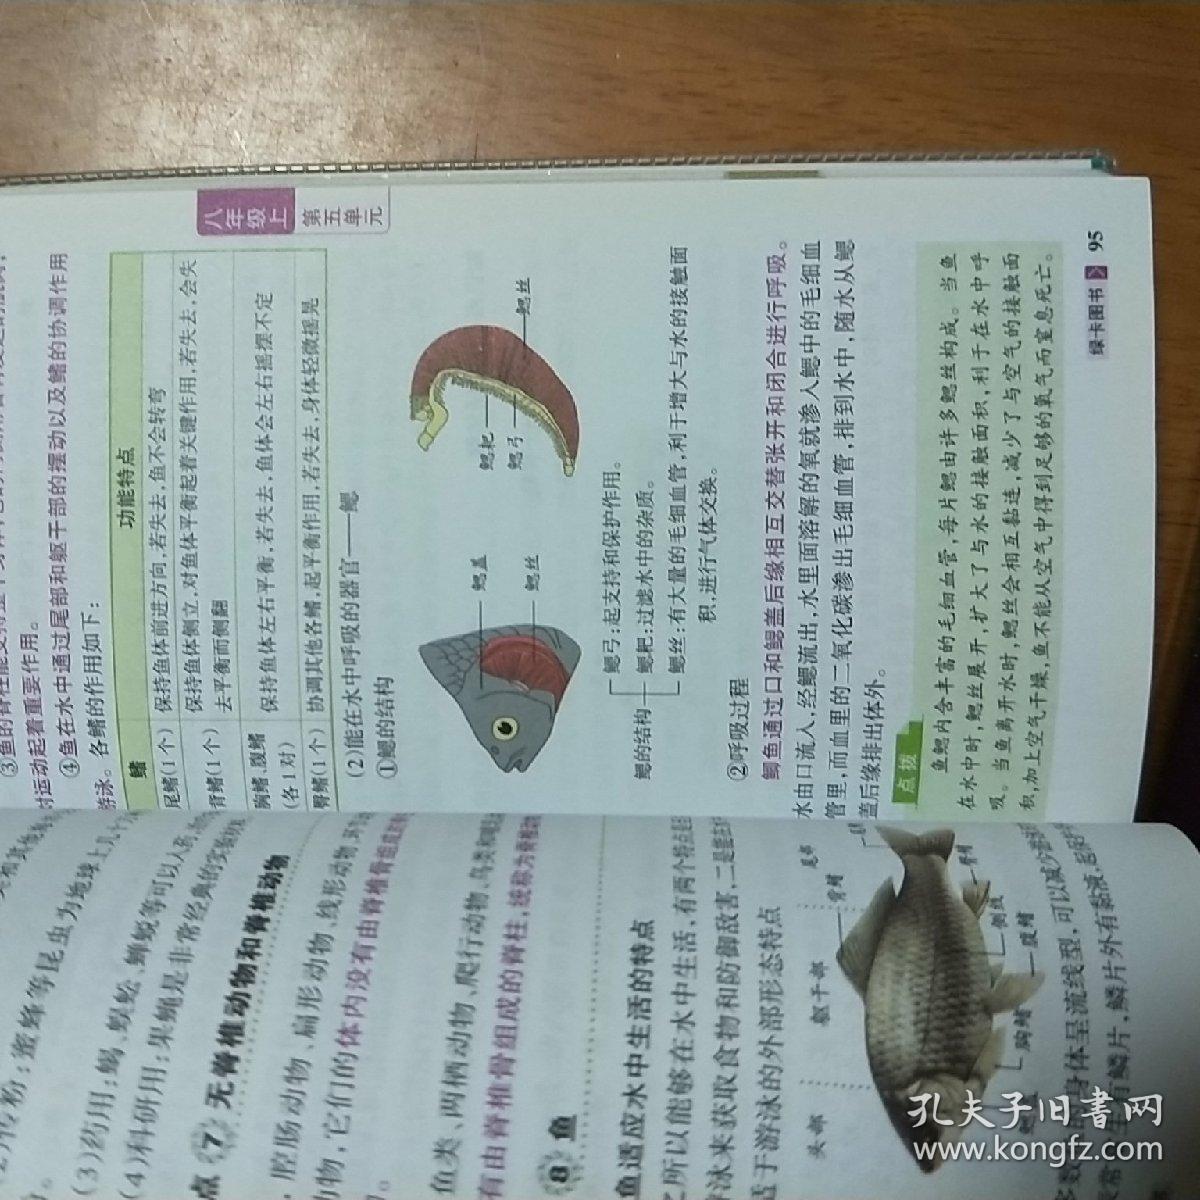 (3)药用:蝎、蜈蚣、蝉蜕等可以入药,
(4)科研用:果蝇是非常经典的实验材
点 7 无脊椎动物和脊椎动物
、腔肠动物、扁形动物、线形动物、环
动物,它们的体内没有由脊椎骨组成
鱼类、两栖动物、爬行动物、鸟类和哺乳
有由脊椎骨组成的脊柱,统称为脊椎动
8 鱼
鱼适应水中生活的特点
之所以能够在水中生活,有两个特点是
游泳来获取食物和防御敌害,二是能在
适于游泳的外部形态特点
头部 躯干部 尾部
背鳍
侧线
臀鳍
胸鳍
腹鳍
身体呈流线型,可以减少
有鳞片,鳞片外有黏液,起保护
八年级上
第五单元
对运动起着重要作用。
④鱼在水中通过尾部和躯干部的摆动以及鳍的协调作用
游泳。各鳍的作用如下:
鳍 功能特点
尾鳍(1个) 保持鱼体前进方向,若失去,鱼不会转弯
背鳍(1个) 保持鱼体侧立,对鱼体平衡起着关键作用,若失去,会失
去平衡而侧翻
胸鳍、腹鳍
(各1对) 保持鱼体左右平衡,若失去,鱼体会左右摇摆不定
臀鳍(1个) 协调其他各鳍,起平衡作用,若失去,身体轻微摇晃
(2)能在水中呼吸的器官——鳃
①鳃的结构
鳃盖
鳃丝
鳃耙
鳃弓
鳃丝
鳃的结构
鳃弓:起支持和保护作用。
鳃耙:过滤水中的杂质。
鳃丝:有大量的毛细血管,利于增大与水的接触面
积,进行气体交换。
②呼吸过程
鲫鱼通过口和鳃盖后缘相互交替张开和闭合进行呼吸。
水由口流入,经鳃流出,水里面溶解的氧就渗入鳃中的毛细血
管里,而血里的二氧化碳渗出毛细血管,排到水中,随水从鳃
盖后缘排出体外。
点拨
鱼鳃内含丰富的毛细血管,每片鳃由许多鳃丝构成。当鱼
在水中时,鳃丝展开,扩大了与水的接触面积,利于在水中呼
吸。当鱼离开水时,鳃丝会相互黏连,减少了与空气的接触面
积,加上空气干燥,鱼不能从空气中得到足够的氧气而窒息死亡。
绿卡图书 95
孔夫子旧书网
www.kongfz.com